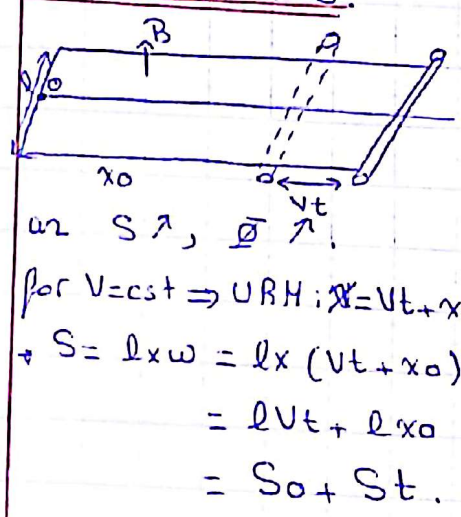 B
l O
x0
Vt
un S ↗, Φ ↗.
for V=cst ⇒ URM : x=Vt+x
* S = l×w = l×(Vt+x0)
= lVt + lx0
= S0 + St.